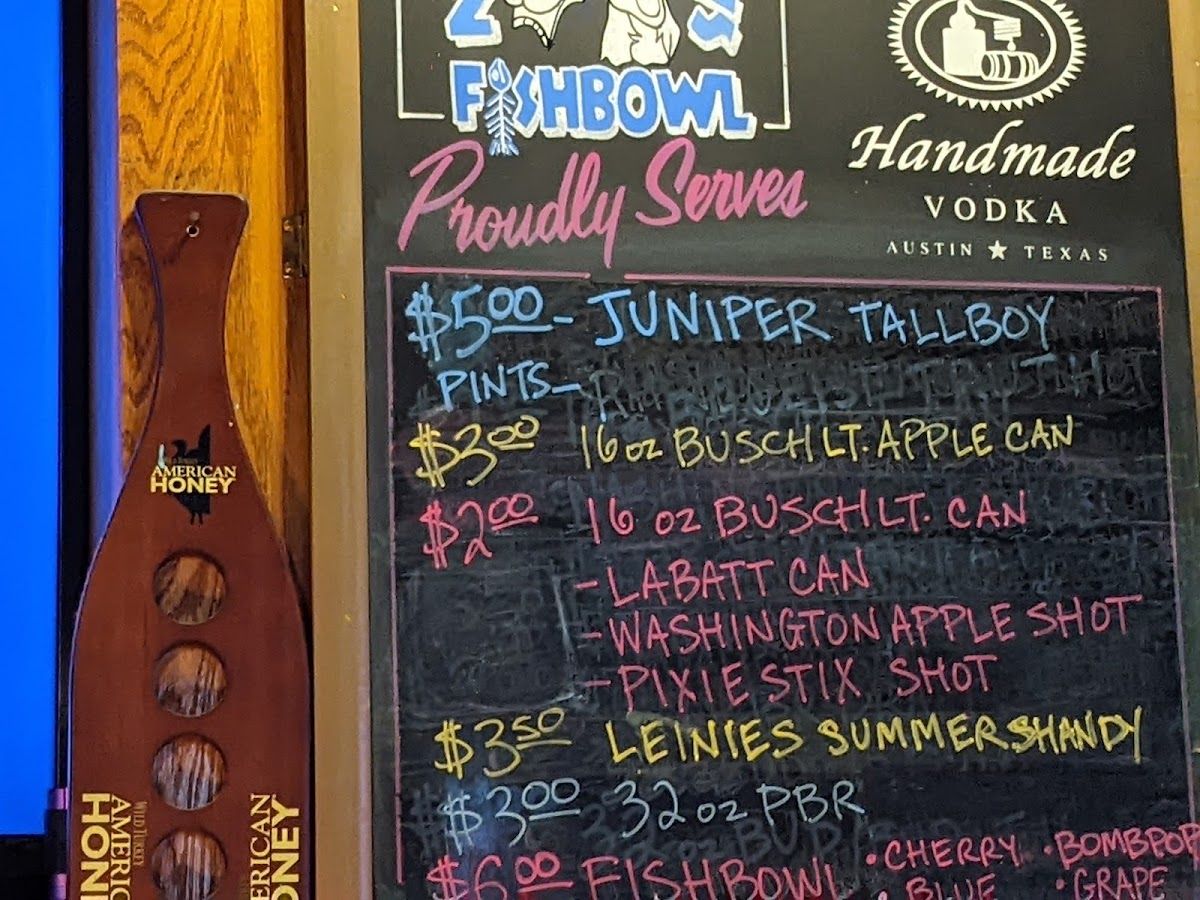 FISHBOWL
Proudly Serves
Handmade
VODKA
AUSTIN ★ TEXAS
$5.00 - JUNIPER TALLBOY
PINTS-
$3.00 16 oz BUSCH LT. APPLE CAN
$2.00 16 oz BUSCH LT. CAN
- LABATT CAN
- WASHINGTON APPLE SHOT
- PIXIE STIX SHOT
$3.50 LEINIES SUMMER SHANDY
$3.00 32 oz PBR
$6.00 FISHBOWL
• CHERRY • BOMBPOP
• BLUE • GRAPE
AMERICAN
HONEY
WILD TURKEY
AMERIC
HON
ERICAN
ONEY